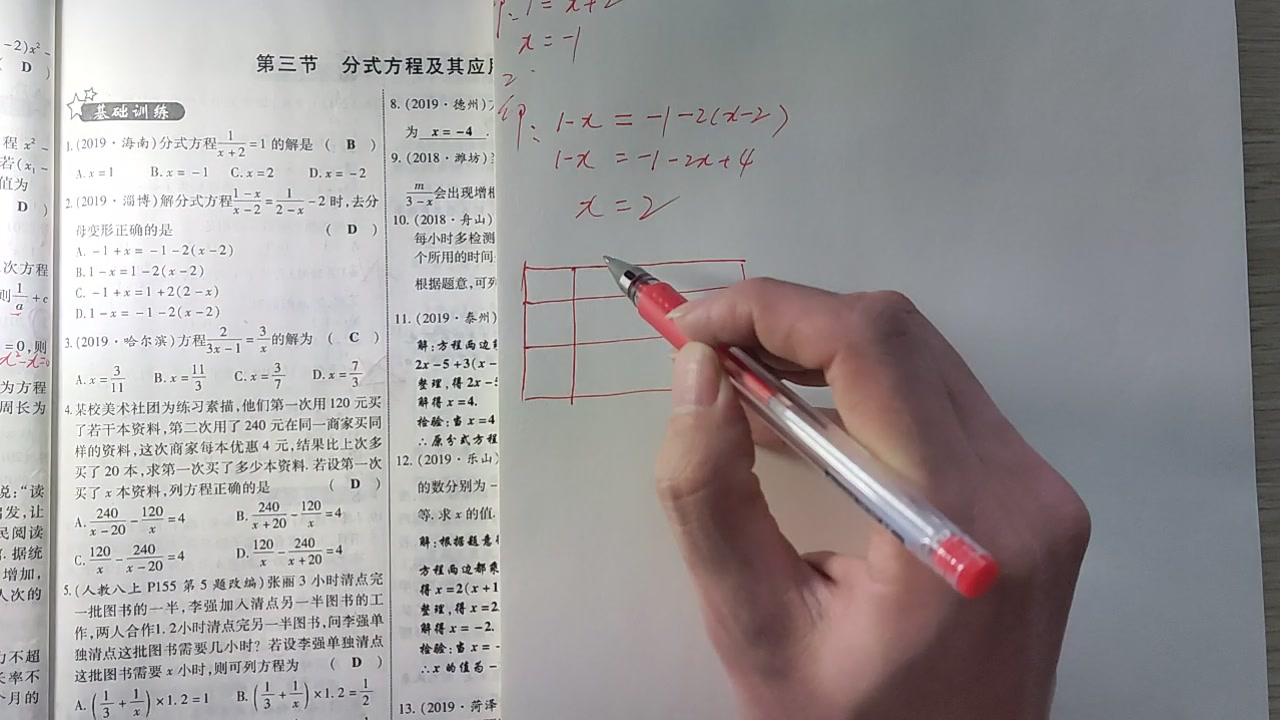 -2)x²-
D )
程 x²-
若(x₁-
值为
D )
次方程
则1/a+c
=0,则
x²-x=0
为方程
周长为
说:“读
出发,让
民阅读
据统
增加,
人次的
力不超
长率不
个月的
第三节 分式方程及其应用
基础训练
1.(2019·海南)分式方程1/(x+2)=1的解是 ( B )
A.x=1 B.x=-1 C.x=2 D.x=-2
2.(2019·淄博)解分式方程(1-x)/(x-2)=1/(2-x)-2时,去分
母变形正确的是 ( D )
A.-1+x=-1-2(x-2)
B.1-x=1-2(x-2)
C.-1+x=1+2(2-x)
D.1-x=-1-2(x-2)
3.(2019·哈尔滨)方程2/(3x-1)=3/x的解为 ( C )
A.x=3/11 B.x=11/3 C.x=3/7 D.x=7/3
4.某校美术社团为练习素描,他们第一次用120元买
了若干本资料,第二次用了240元在同一商家买同
样的资料,这次商家每本优惠4元,结果比上次多
买了20本,求第一次买了多少本资料.若设第一次
买了x本资料,列方程正确的是 ( D )
A.240/(x-20)-120/x=4 B.240/(x+20)-120/x=4
C.120/x-240/(x-20)=4 D.120/x-240/(x+20)=4
5.(人教八上P155第5题改编)张丽3小时清点完
一批图书的一半,李强加入清点另一半图书的工
作,两人合作1.2小时清点完另一半图书,问李强单
独清点这批图书需要几小时?若设李强单独清点
这批图书需要x小时,则可列方程为 ( D )
A.(1/3+1/x)×1.2=1 B.(1/3+1/x)×1.2=1/2
8.(2019·德州)
为 x=-4 .
9.(2018·潍坊)
m/(3-x)会出现增根
10.(2018·舟山)
每小时多检测
个所用的时间
根据题意,可列
11.(2019·泰州)
解:方程两边
2x-5+3(x-
整理,得2x-5
解得x=4.
检验:当x=4
∴原分式方程
12.(2019·乐山)
的数分别为-
等.求x的值.
解:根据题意
方程两边都乘
得x=2(x+1
整理,得x=2
解得x=-2.
检验:当x=-
∴x的值为-
13.(2019·菏泽
1=x+2
x=-1
2.
1-x=-1-2(x-2)
1-x=-1-2x+4
x=2